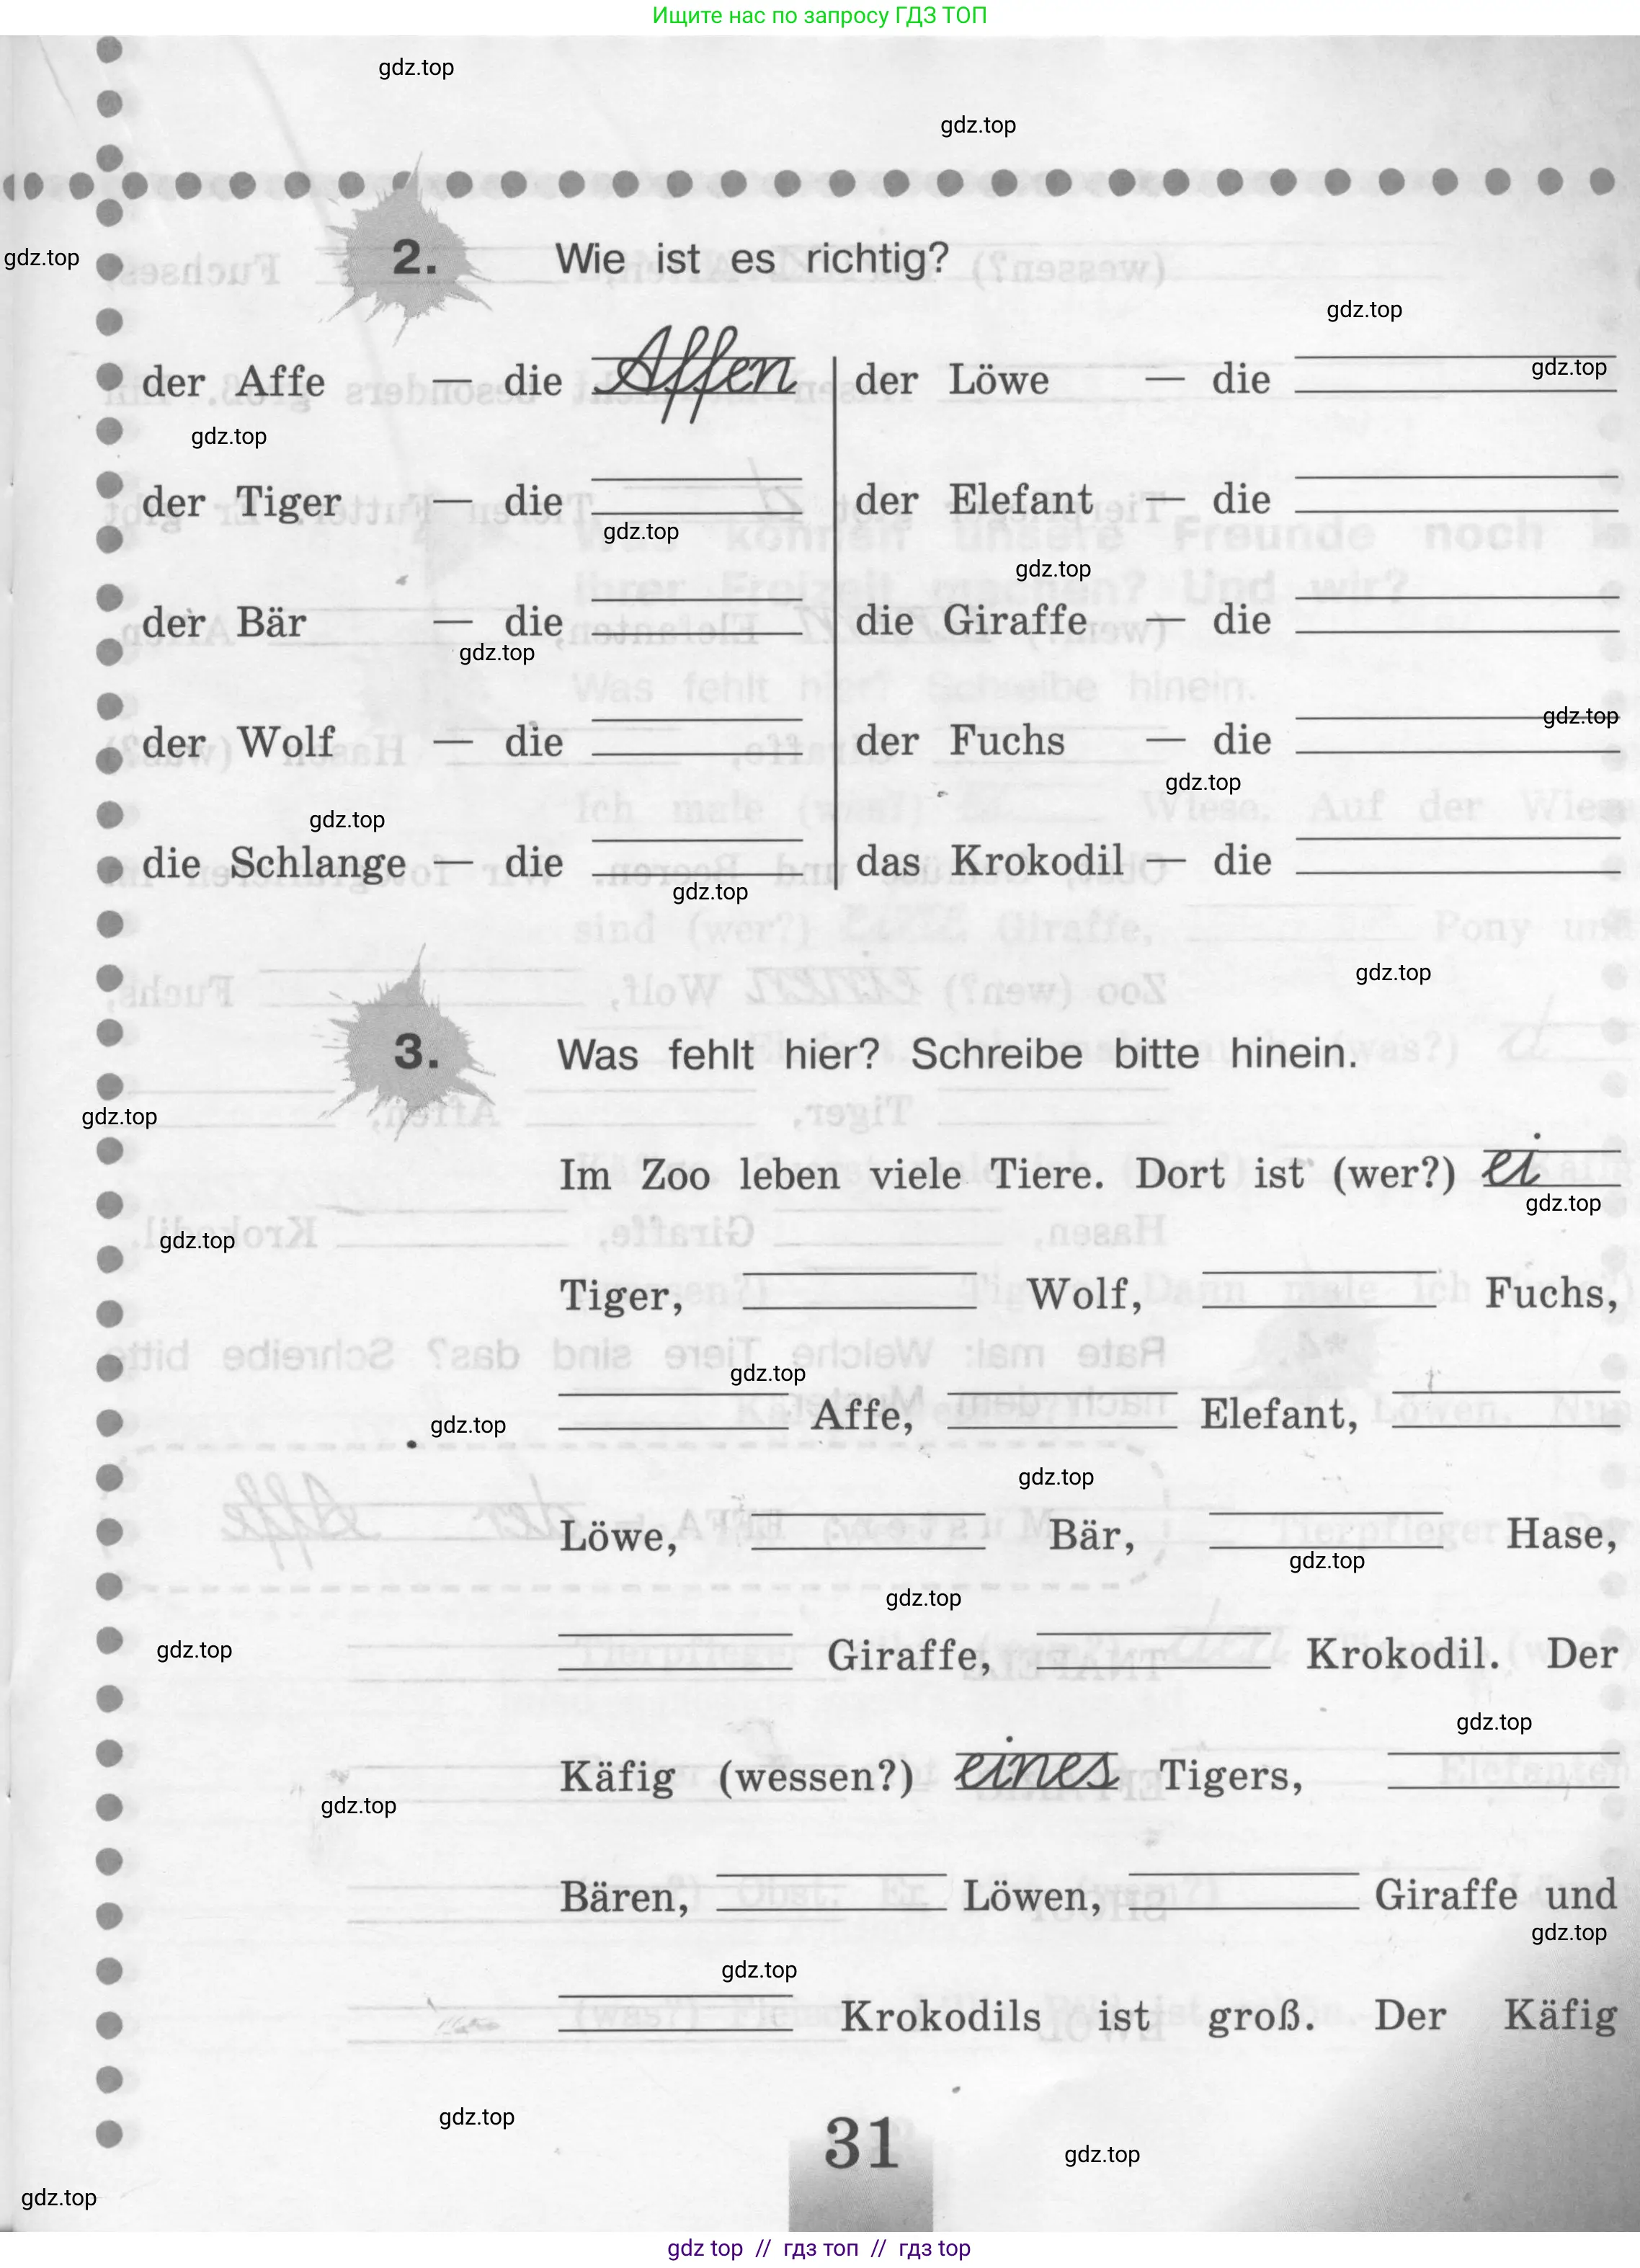 Ищите нас по запросу ГДЗ ТОП
gdz.top
gdz.top
2. Wie ist es richtig?
gdz.top
gdz.top
der Affe — die Affen
der Löwe — die
gdz.top
gdz.top
der Tiger — die
der Elefant — die
gdz.top
gdz.top
der Bär — die
die Giraffe — die
gdz.top
gdz.top
der Wolf — die
der Fuchs — die
gdz.top
gdz.top
die Schlange — die
das Krokodil — die
gdz.top
gdz.top
3. Was fehlt hier? Schreibe bitte hinein.
gdz.top
Im Zoo leben viele Tiere. Dort ist (wer?) ei
gdz.top
gdz.top
Tiger, Wolf, Fuchs,
gdz.top
Affe, Elefant,
gdz.top
gdz.top
Löwe, Bär, Hase,
gdz.top
gdz.top
gdz.top
Giraffe, Krokodil. Der
gdz.top
Käfig (wessen?) eines Tigers,
gdz.top
Bären, Löwen, Giraffe und
gdz.top
gdz.top
Krokodils ist groß. Der Käfig
gdz.top
31
gdz.top
gdz.top
gdz top // гдз топ // гдз top